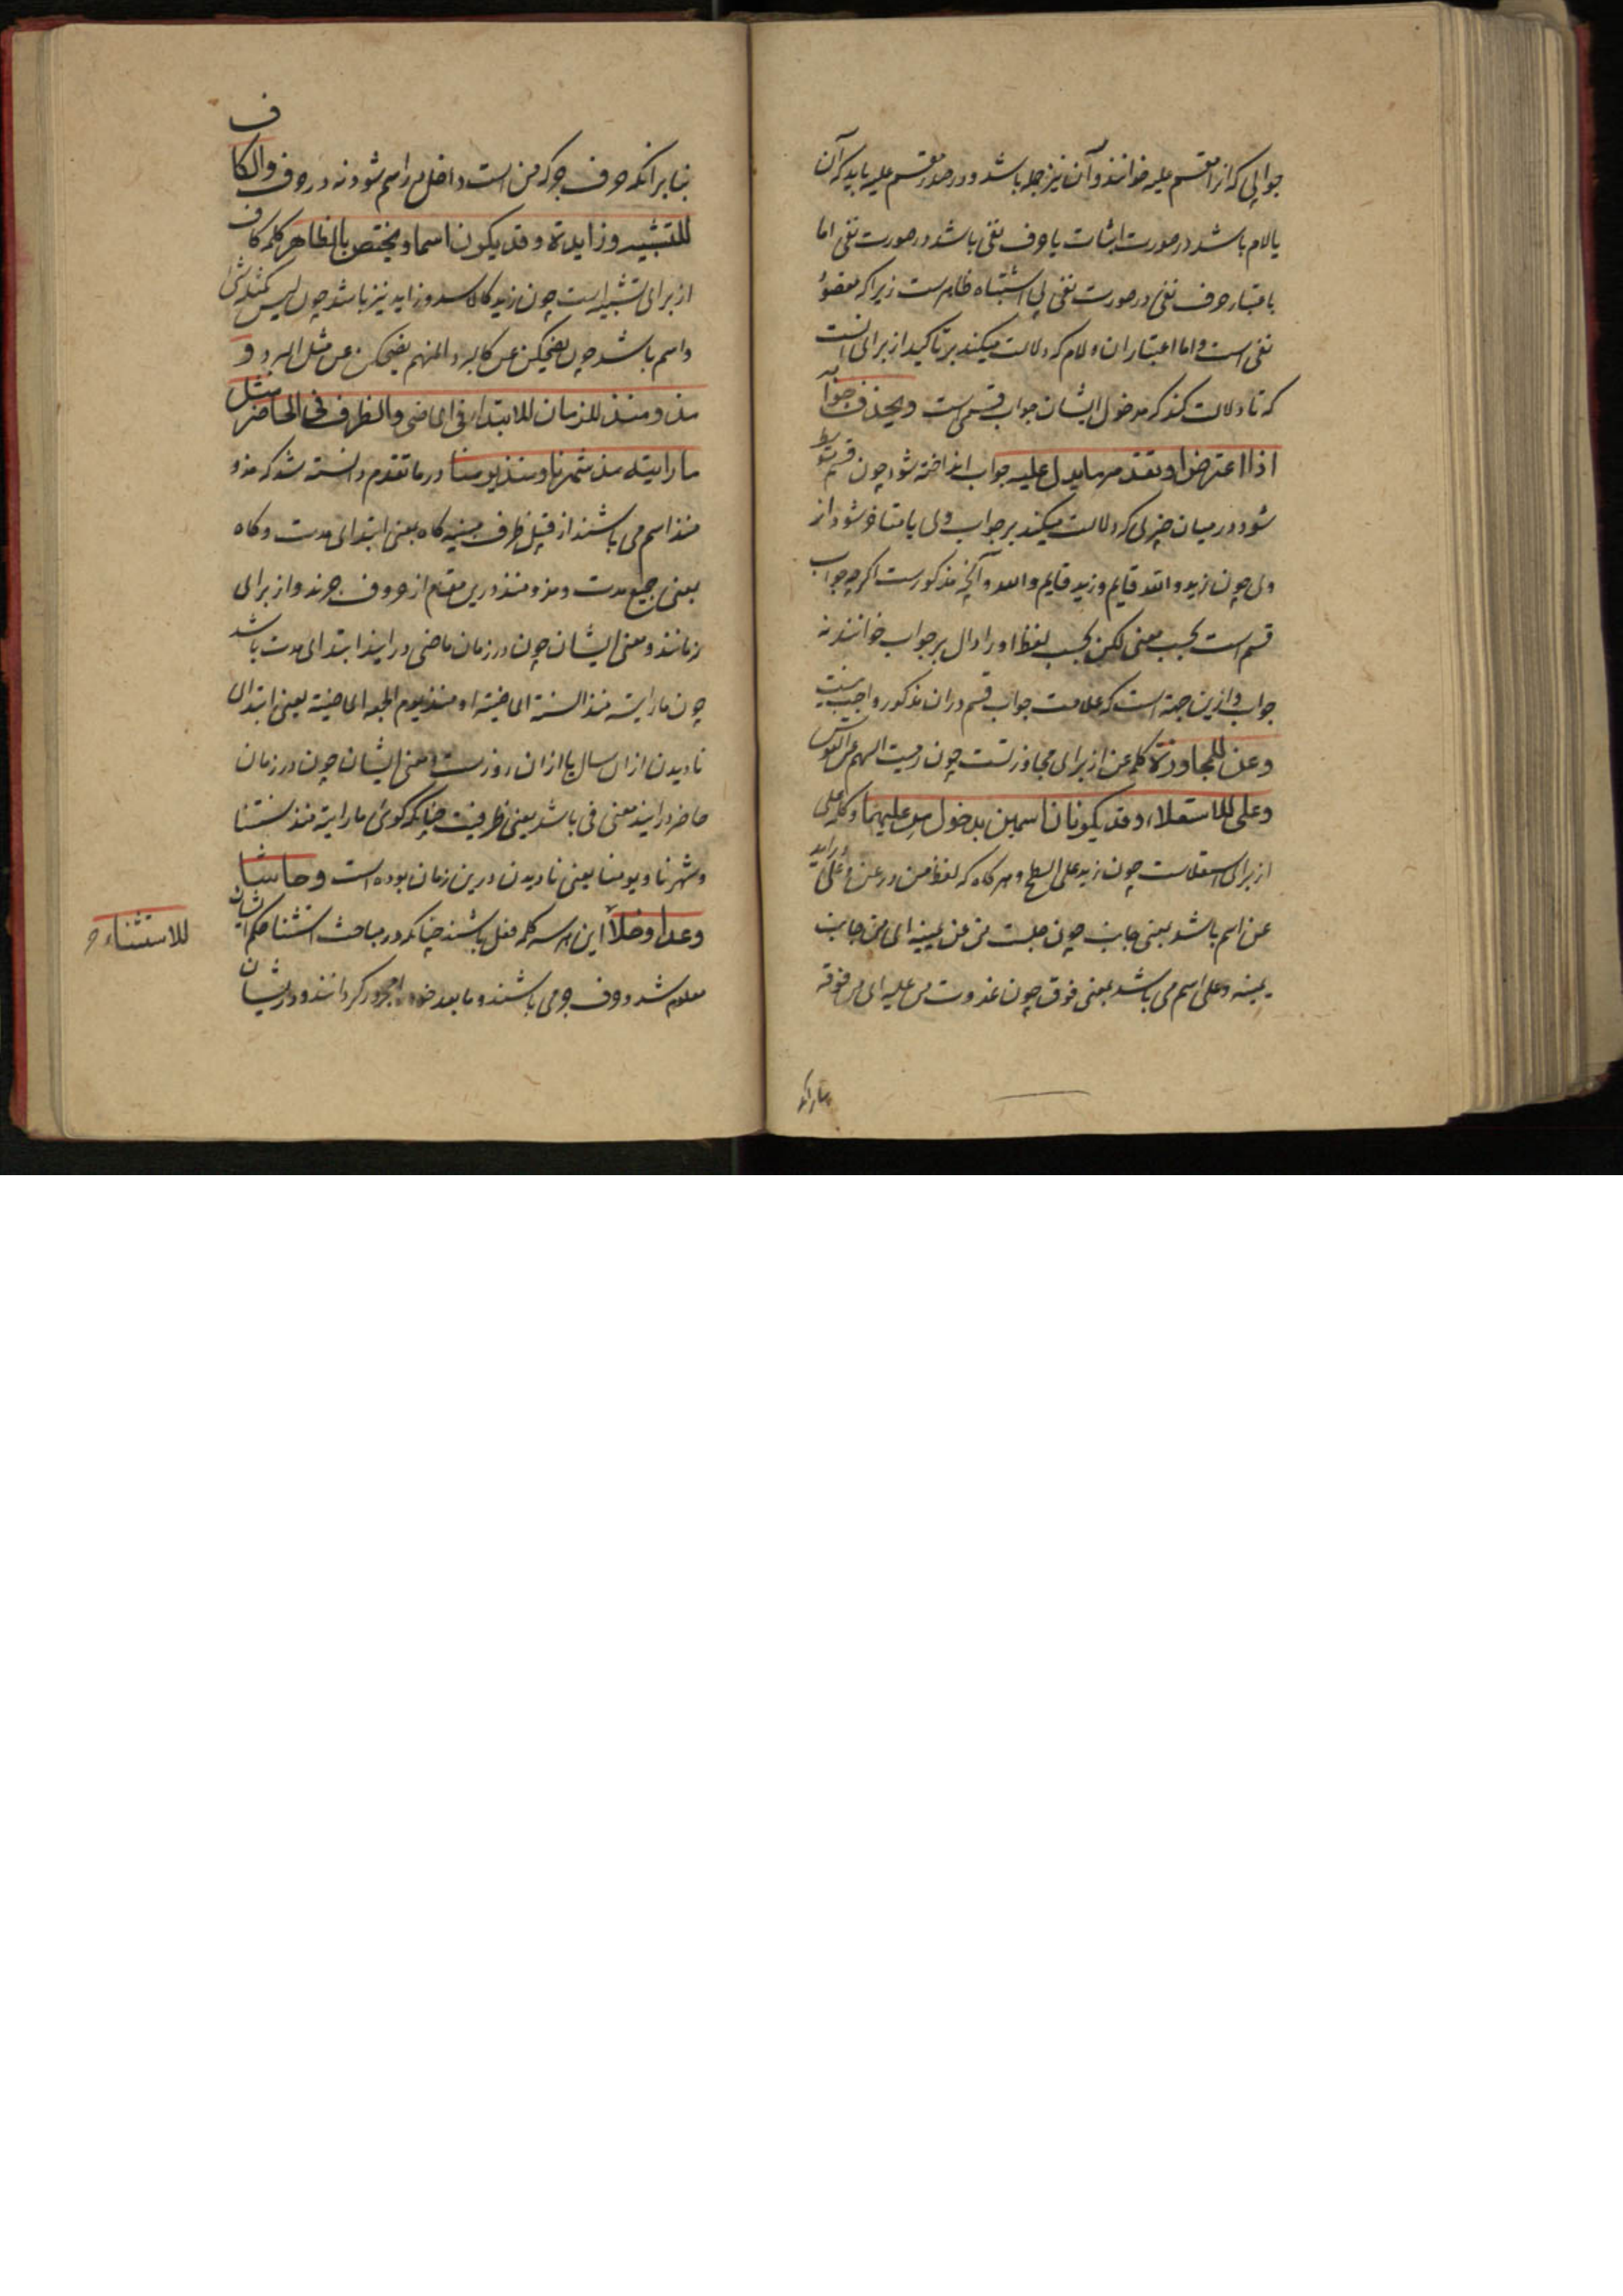 جوابی که انرا مقسم علیه خوانند و آن نیز جمله باشد و در صدر مقسم علیه باید که آن
یا لام باشد در صورت اثبات یا حرف نفی باشد در صورت نفی اما
باعتبار حرف نفی در صورت نفی بی اشتباه ظاهرست زیرا که مقصود
نفی است و اما اعتبار ان و لام که دلالت میکند بر تاکید از برای انست
که تا دلالت کند که مدخول ایشان جواب قسم است ویحذف جوابه
اذا اعترض او تقدمه ما یدل علیه جواب انداخته شود چون قسم متوسط
شود در میان چیزی که دلالت میکند بر جواب وی یا متاخر شود از
وی چون زید والله قایم و زید قایم والله و آنچه مذکورست اگرچه جواب
قسم است بحسب معنی لکن بحسب لفظ اورا دال بر جواب خوانند نه
جواب و ازین جهة است که علامت جواب قسم دران مذکور واجب نیست
وعن للمجاوزة کلمه عن از برای مجاوزتست چون رمیت السهم عن القوس
وعلی للاستعلاء وقد یکونان اسمین بدخول من علیهما و کلمه علی
از برای استعلاست چون زید علی السطح و هر کاه که لفظ من در عن و علی دراید
عن اسم باشد بمعنی جانب چون جلست من عن یمینه ای من جانب
یمینه و علی اسم می باشد بمعنی فوق چون غدوت من علیه ای من فوقه
بنا برانکه
بنا برانکه حرف جر که من است داخل بر اسم شود نه در حرف والکاف
للتشبیه وزایدة وقد یکون اسما ویختص بالظاهر کلمه کاف
از برای تشبیه است چون زید کالاسد و زاید نیز باشد چون لیس کمثله شی
و اسم باشد چون یضحکن عن کالبرد المنهم یضحکن عن مثل البرد و
مذ ومنذ للزمان للابتداء فی الماضی والظرف فی الحاضر مثل
ما رایته مذ شهرنا ومنذ یومنا در ما تقدم دانسته شد که مذ و
منذ اسم می باشند از قبیل ظرف مبنیه کاه بمعنی ابتدای مدت و کاه
بمعنی جمیع مدت و مذ و منذ درین مقام از حروف جرند و از برای
زمانند و معنی ایشان چون در زمان ماضی درایند ابتدای مدت باشد
چون ما رایته منذ السنة الماضیة او منذ یوم الجمعه الماضیة یعنی ابتدای
نادیدن ازان سال یا ازان روزست و معنی ایشان چون در زمان
حاضر درایند معنی فی باشد یعنی ظرفیت چنانکه کوئی ما رایته منذ سنتنا
و شهرنا و یومنا یعنی نادیدن درین زمان بوده است وحاشا
وعدا وخلا این هر سه کلمه فعل باشند چنانکه در مباحث استثنا حکم ایشان
للاستثناء
معلوم شد و حرف جر می باشند و ما بعد خود را مجرور کردانند و در ایشان